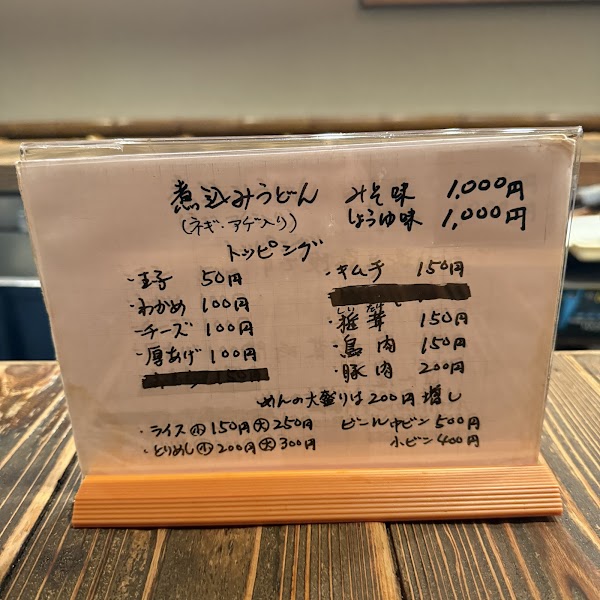 煮込みうどん みそ味 1,000円
(ネギ・アゲ入り) しょうゆ味 1,000円
トッピング
・玉子 50円
・わかめ 100円
・チーズ 100円
・厚あげ 100円
・キムチ 150円
しいたけ
・椎茸 150円
・鳥肉 150円
・豚肉 200円
めんの大盛りは200円増し
・ライス小150円大250円
・とりめし小200円大300円
ビール中ビン500円
小ビン400円